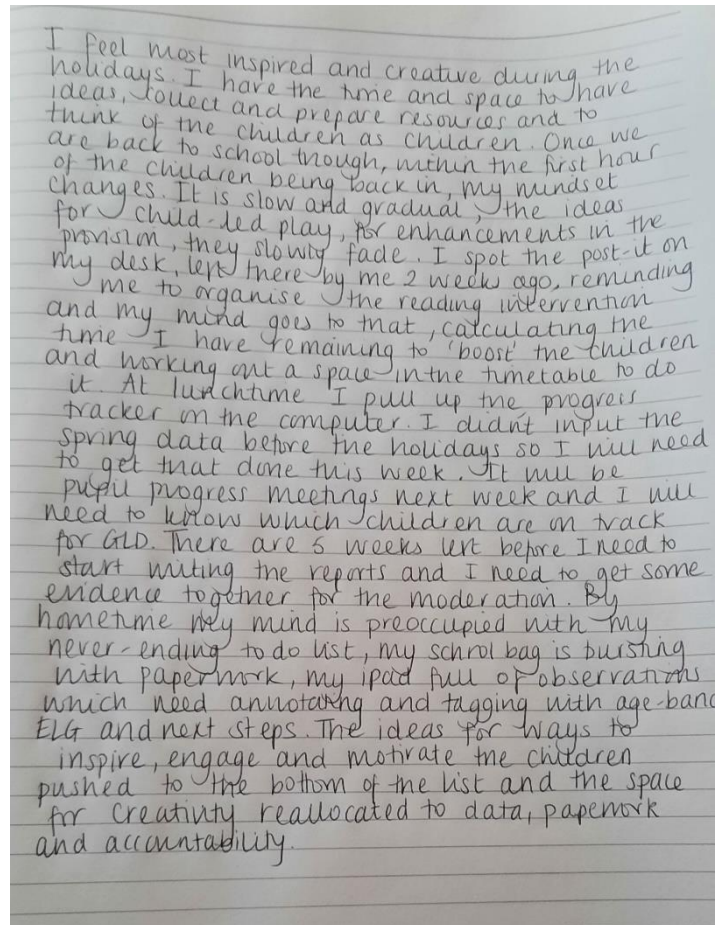 I feel most inspired and creative during the
holidays. I have the time and space to have
ideas, collect and prepare resources and to
think of the children as children. Once we
are back to school though, within the first hour
of the children being back in, my mindset
changes. It is slow and gradual, the ideas
for child-led play, for enhancements in the
provision, they slowly fade. I spot the post-it on
my desk, left there by me 2 weeks ago, reminding
me to organise the reading intervention
and my mind goes to that, calculating the
time I have remaining to 'boost' the children
and working out a space in the timetable to do
it. At lunchtime I pull up the progress
tracker on the computer. I didn't input the
spring data before the holidays so I will need
to get that done this week. It will be
pupil progress meetings next week and I will
need to know which children are on track
for GLD. There are 5 weeks left before I need to
start writing the reports and I need to get some
evidence together for the moderation. By
hometime my mind is preoccupied with my
never-ending to do list, my school bag is bursting
with paperwork, my ipad full of observations
which need annotating and tagging with age-band
ELG and next steps. The ideas for ways to
inspire, engage and motivate the children
pushed to the bottom of the list and the space
for creativity reallocated to data, paperwork
and accountability.